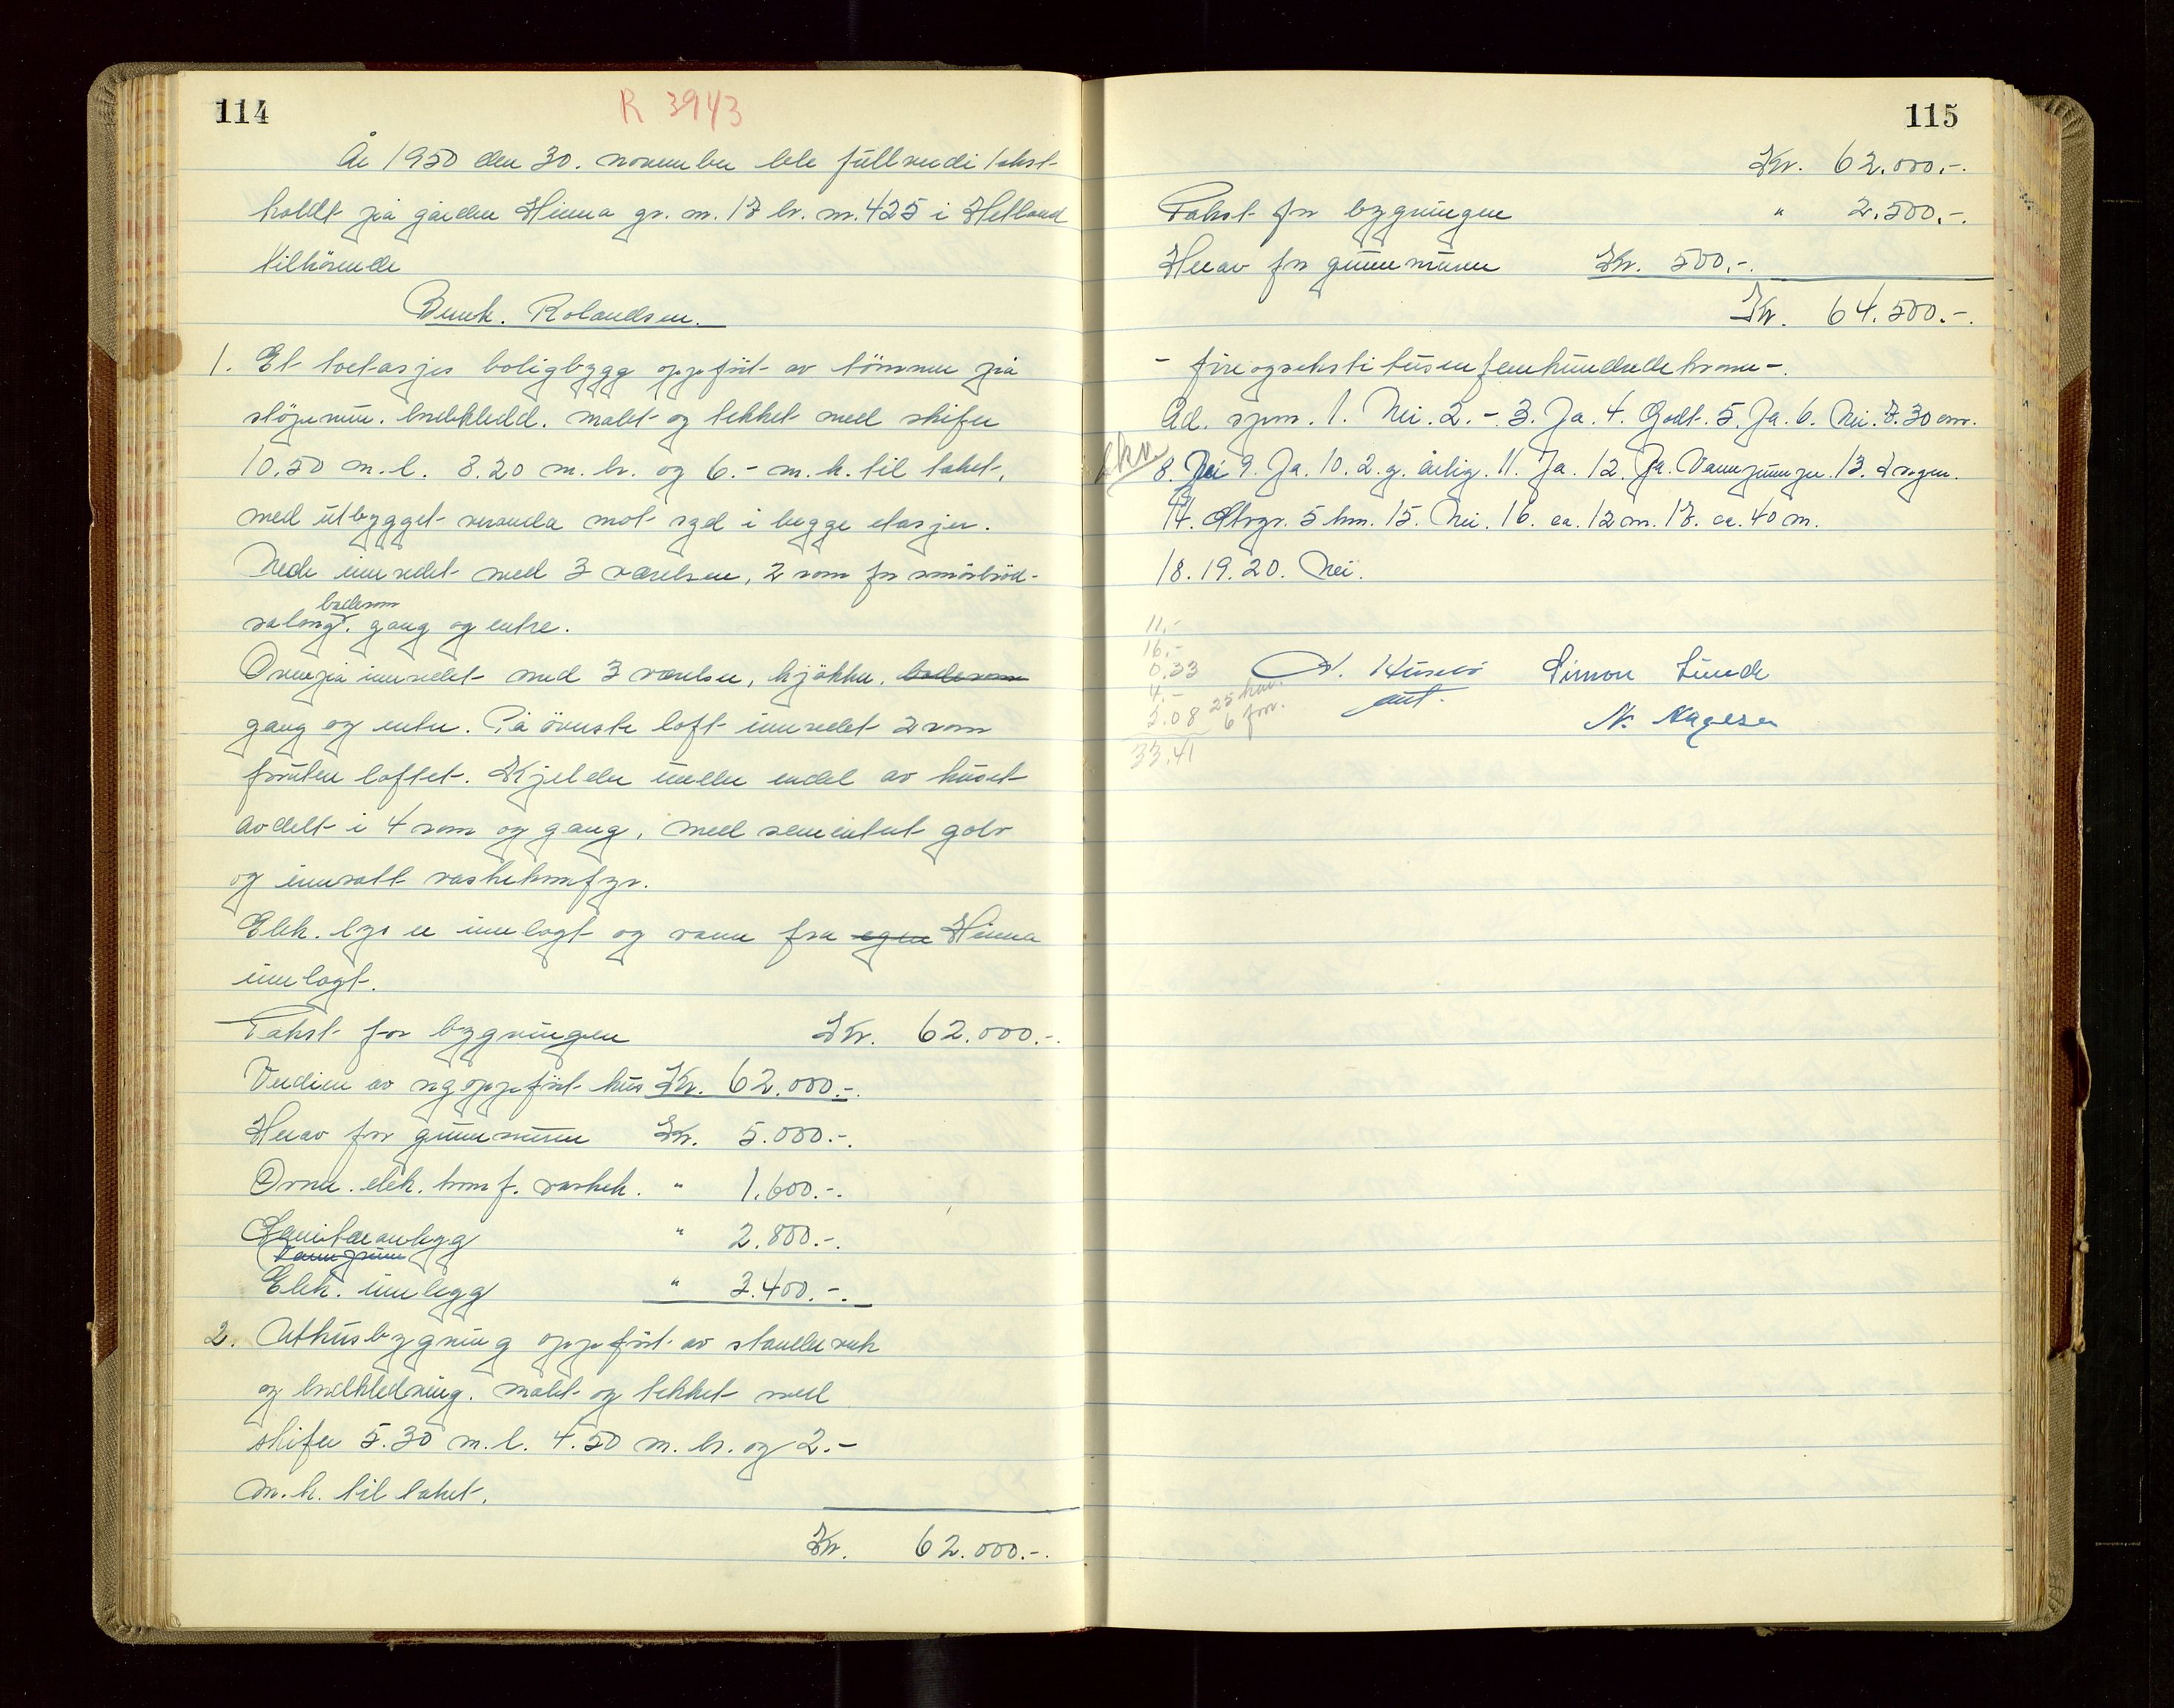 114
R 3943
År 1950 den 30. november ble fullverdi takst
holdt på gården Hinna gr. nr. 17 br. nr. 425 i Hetland
tilhörende
Bernh. Rolandsen.
1. Et toetasjes boligbygg oppfört av tömmer på
stöpemur. bordkledd. malt og tekket med skifer
10.50 m. l. 8.20 m. br. og 6.- m. h. til taket,
med utbygget veranda mot syd i begge etasjer.
Nede innredet med 3 værelser, 2 rom for smörbröd-
baderom
salong. gang og entre.
Ovenpå innredet med 3 værelser, kjökken, baderom
gang og entre. På överste loft innredet 2 rom
foruten loftet. Kjelder under endel av huset
avdelt i 4 rom og gang, med sementert golv
og innsatt vaskekomfyr.
Elek. lys er innlagt og vann fra egen Hinna
innlagt.
Takst for bygningen Kr. 62.000.-.
Verdien av nyoppfört hus Kr. 62.000.-.
Herav for grunnmuren Kr. 5.000.-.
Ovner. elek. komf. vaskek. " 1.600.-.
Sanitæranlegg " 2.800.-.
Vannpum
Elek. innlegg " 3.400.-.
2. Uthusbygning oppfört av stenderverk
og bordkledning. malt og tekket med
skifer 5.30 m. l. 4.50 m. br. og 2.-
m. h. til taket.
Kr. 62.000.-.
115
Kr. 62.000.-.
Takst for bygningen " 2.500.-.
Herav for grunnmuren Kr. 500.-.
Kr. 64.500.-.
- fireogsekstitusenfemhundredekroner -.
Ad. spm. 1. Nei. 2. - 3. Ja. 4. Godt. 5. Ja. 6. Nei. 7. 30 cm.
8. Nei 9. Ja. 10. 2. g. årlig. 11. Ja. 12. Ja. Vannpumpe. 13. Ingen.
14. Stvgr. 5 km. 15. Nei. 16. ca. 12 m. 17. ca. 40 m.
18. 19. 20. Nei.
11.-
16.-
0.33
4.-
2.08 25 km.
6 forr.
33.41
Husebö Simon Lunde
N.